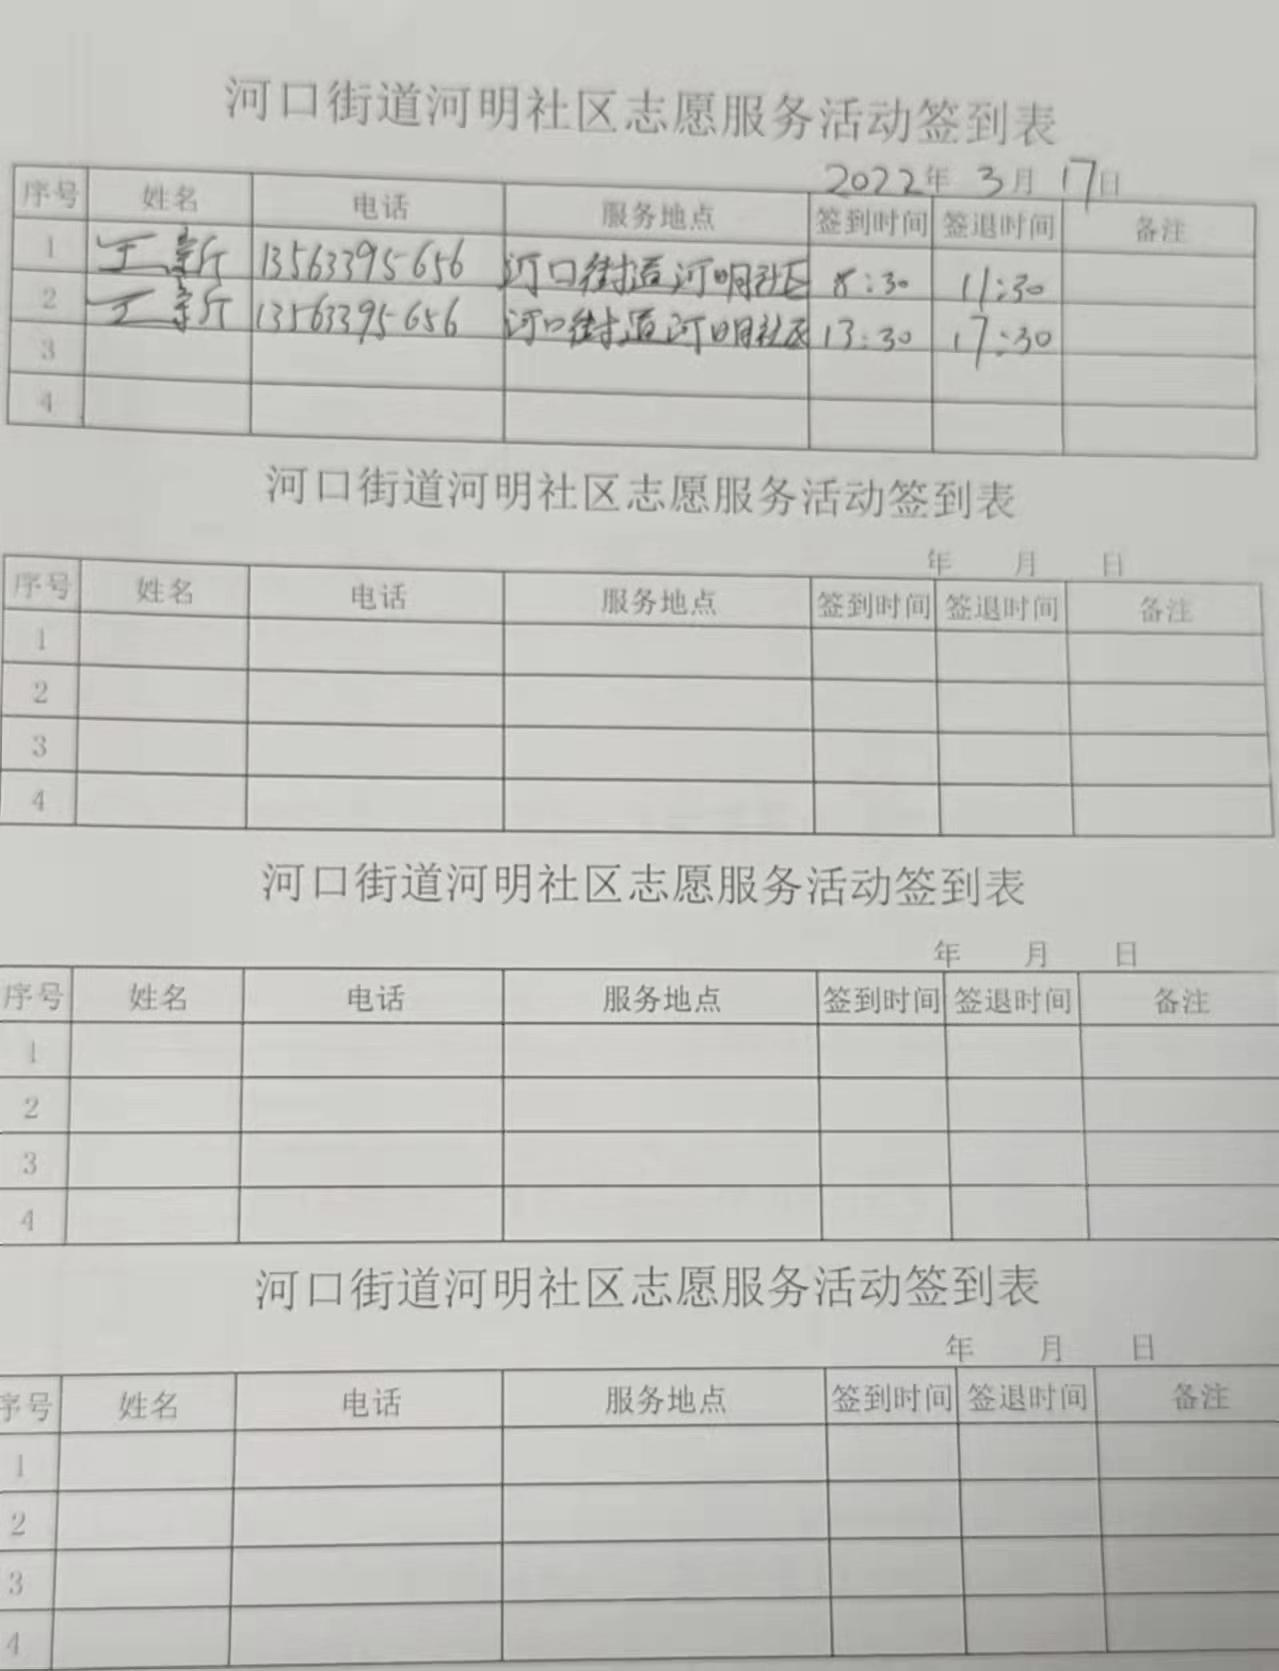 河口街道河明社区志愿服务活动签到表
2022年 3月 17日
序号 姓名 电话 服务地点 签到时间 签退时间 备注
1 王新 13563395656 河口街道河明社区 8:30 11:30
2 王新 13563395656 河口街道河明社区 13:30 17:30
3
4
河口街道河明社区志愿服务活动签到表
年 月 日
序号 姓名 电话 服务地点 签到时间 签退时间 备注
1
2
3
4
河口街道河明社区志愿服务活动签到表
年 月 日
序号 姓名 电话 服务地点 签到时间 签退时间 备注
1
2
3
4
河口街道河明社区志愿服务活动签到表
年 月 日
序号 姓名 电话 服务地点 签到时间 签退时间 备注
1
2
3
4